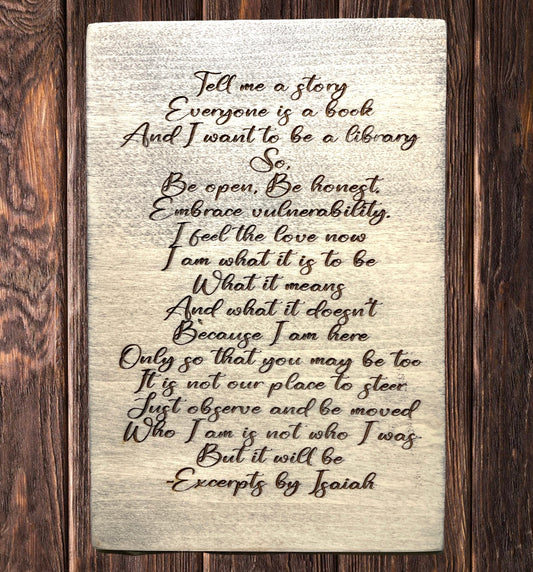 Tell me a story
Everyone is a book
And I want to be a library
So,
Be open, Be honest.
Embrace vulnerability.
I feel the love now
I am what it is to be
What it means
And what it doesn't
Because I am here
Only so that you may be too
It is not our place to steer
Just observe and be moved
Who I am is not who I was
But it will be
-Excerpts by Isaiah